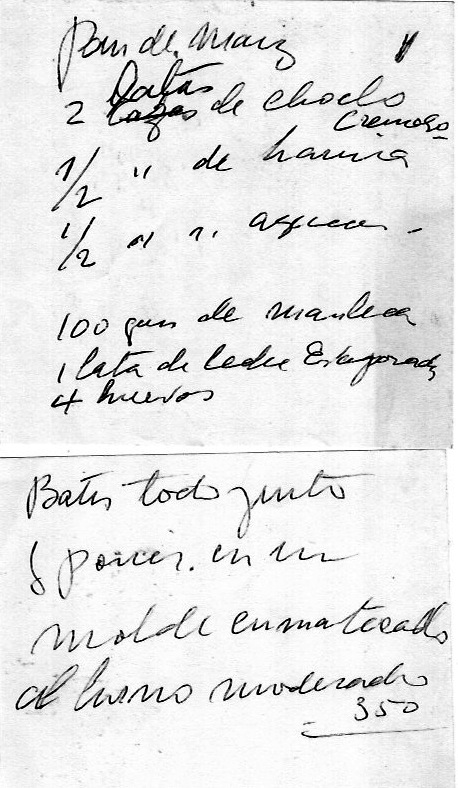 Pan de Maiz
Latas
2 tazas de choclo
Cremoso
1/2 " de harina
1/2 " " azucar
100 grs de manteca
1 lata de leche Evaporada
4 huevos
Batir todo junto
y poner en un
molde enmantecado
al horno moderado
350